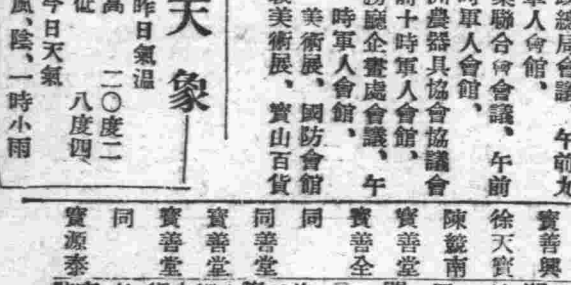 總局會議 午前九
軍人會館、
業聯合會會議、午前
時軍人會館、
洲農器具協會協議會
前十時軍人會館、
務廳企畫處會議、午
時軍人會館、
美術展、國防會館
美術展、寶山百貨
天象
昨日氣溫
高 二〇度二
低 八度四、
今日天氣
風、陰、一時小雨
寶善興
徐天寶
陳懿南
寶善堂
寶善全
同
同善堂
寶善堂
寶善堂
同
寶源泰